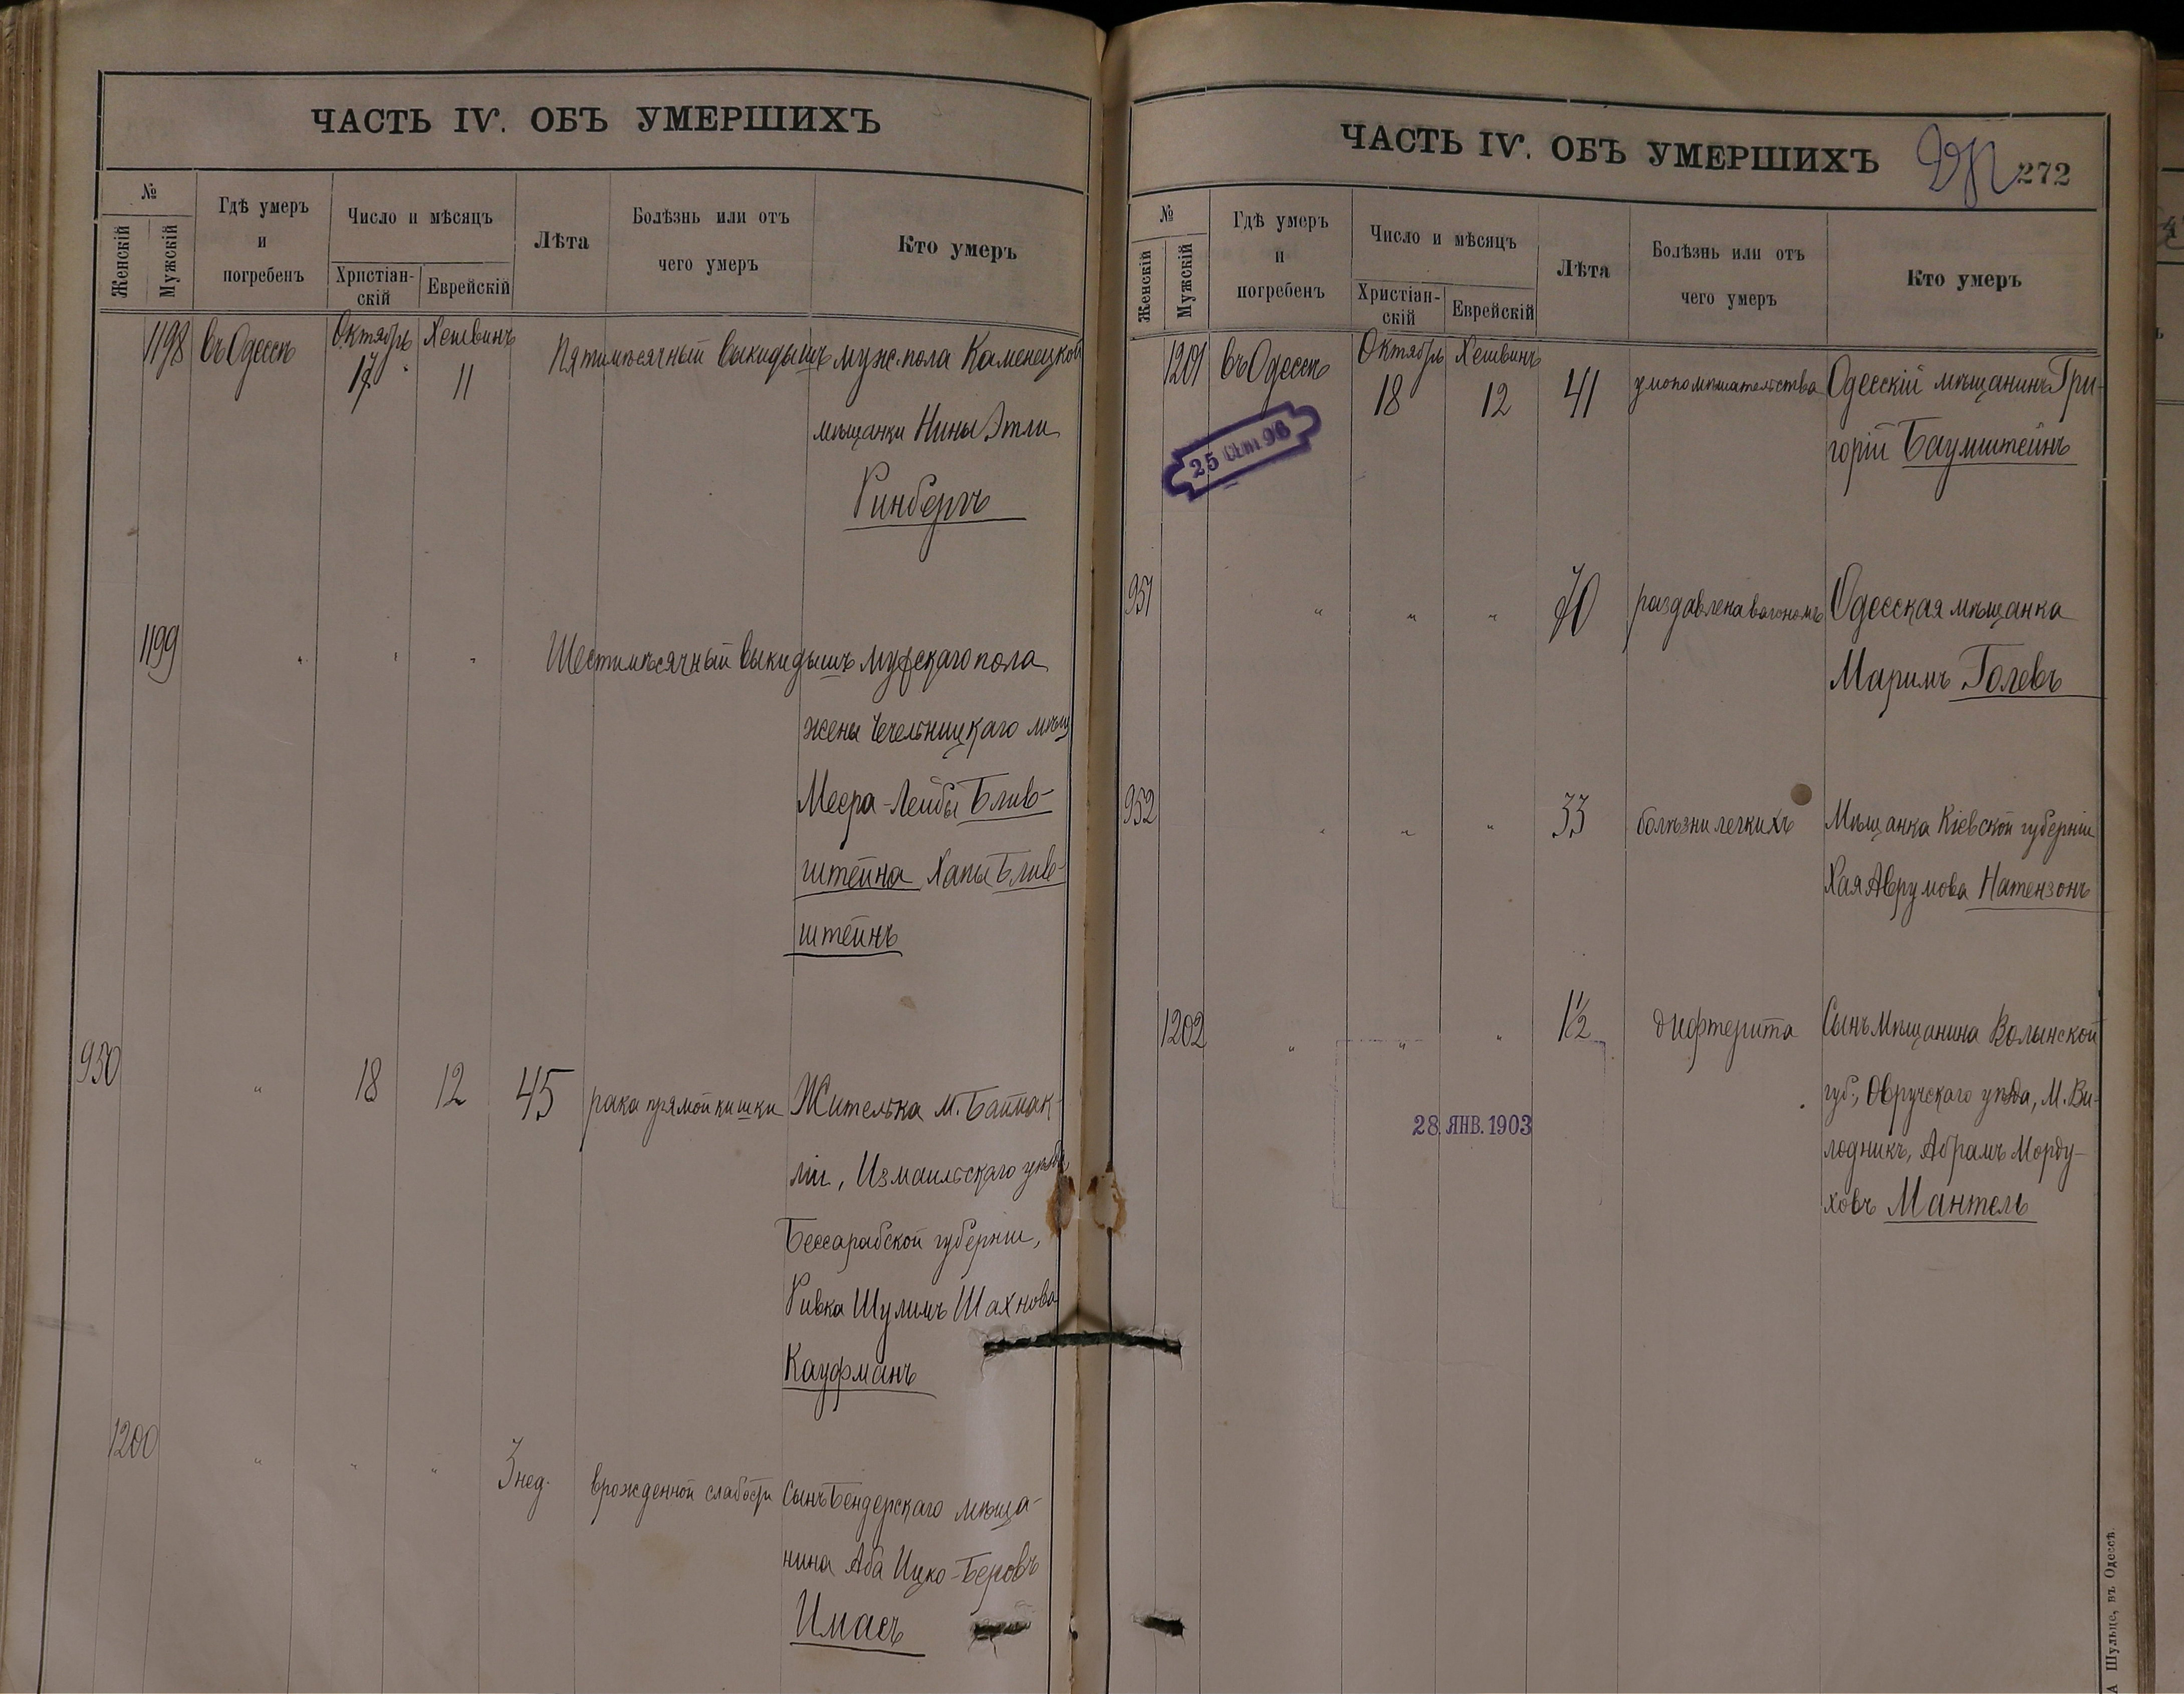 ЧАСТЬ IV. ОБЪ УМЕРШИХЪ
№
Женскій
Мужскій
Гдѣ умеръ
и
погребенъ
Число и мѣсяцъ
Христіан-
скій
Еврейскій
Лѣта
Болѣзнь или отъ
чего умеръ
Кто умеръ
1198 въ Одессѣ Октябрь 17 Хешвинъ 11 Пятимѣсячный выкидышъ муж. пола Каменецкой
мѣщанки Нины Этли
Ринбергъ
1199 " " " Шестимѣсячный выкидышъ мужскаго пола
жены Чечельницкаго мѣщ
Меера-Лейбы Блив-
штейна Ханы Блив-
штейнъ
950 " 18 12 45 рака прямой кишки Жителька м. Баймак-
ліи, Измаильскаго уѣзда
Бессарабской губерніи,
Ривка Шулимъ Шахнова
Кауфманъ
1200 " " " 3 нед. врожденной слабости Сынъ Бендерскаго мѣща-
нина Аба Ицко-Беровъ
Имасъ
ЧАСТЬ IV. ОБЪ УМЕРШИХЪ
272
№
Женскій
Мужскій
Гдѣ умеръ
и
погребенъ
Число и мѣсяцъ
Христіан-
скій
Еврейскій
Лѣта
Болѣзнь или отъ
чего умеръ
Кто умеръ
1201 въ Одессѣ Октябрь 18 Хешвинъ 12 41 умопомѣшательства Одесскій мѣщанинъ Гри-
горій Баумштейнъ
25 96
951 " " " 70 раздавлена вагономъ Одесская мѣщанка
Маримъ Голевъ
952 " " " 33 болѣзни легкихъ Мѣщанка Кіевской губерніи
Хая Аврумова Натензонъ
1202 " " " 1½ дифтерита Сынъ мѣщанина Волынской
губ., Овручскаго уѣзда, М. Ви-
лодникъ, Абрамъ Морду-
ховъ Мантель
28 ЯНВ. 1903
Шульце, въ Одессѣ.